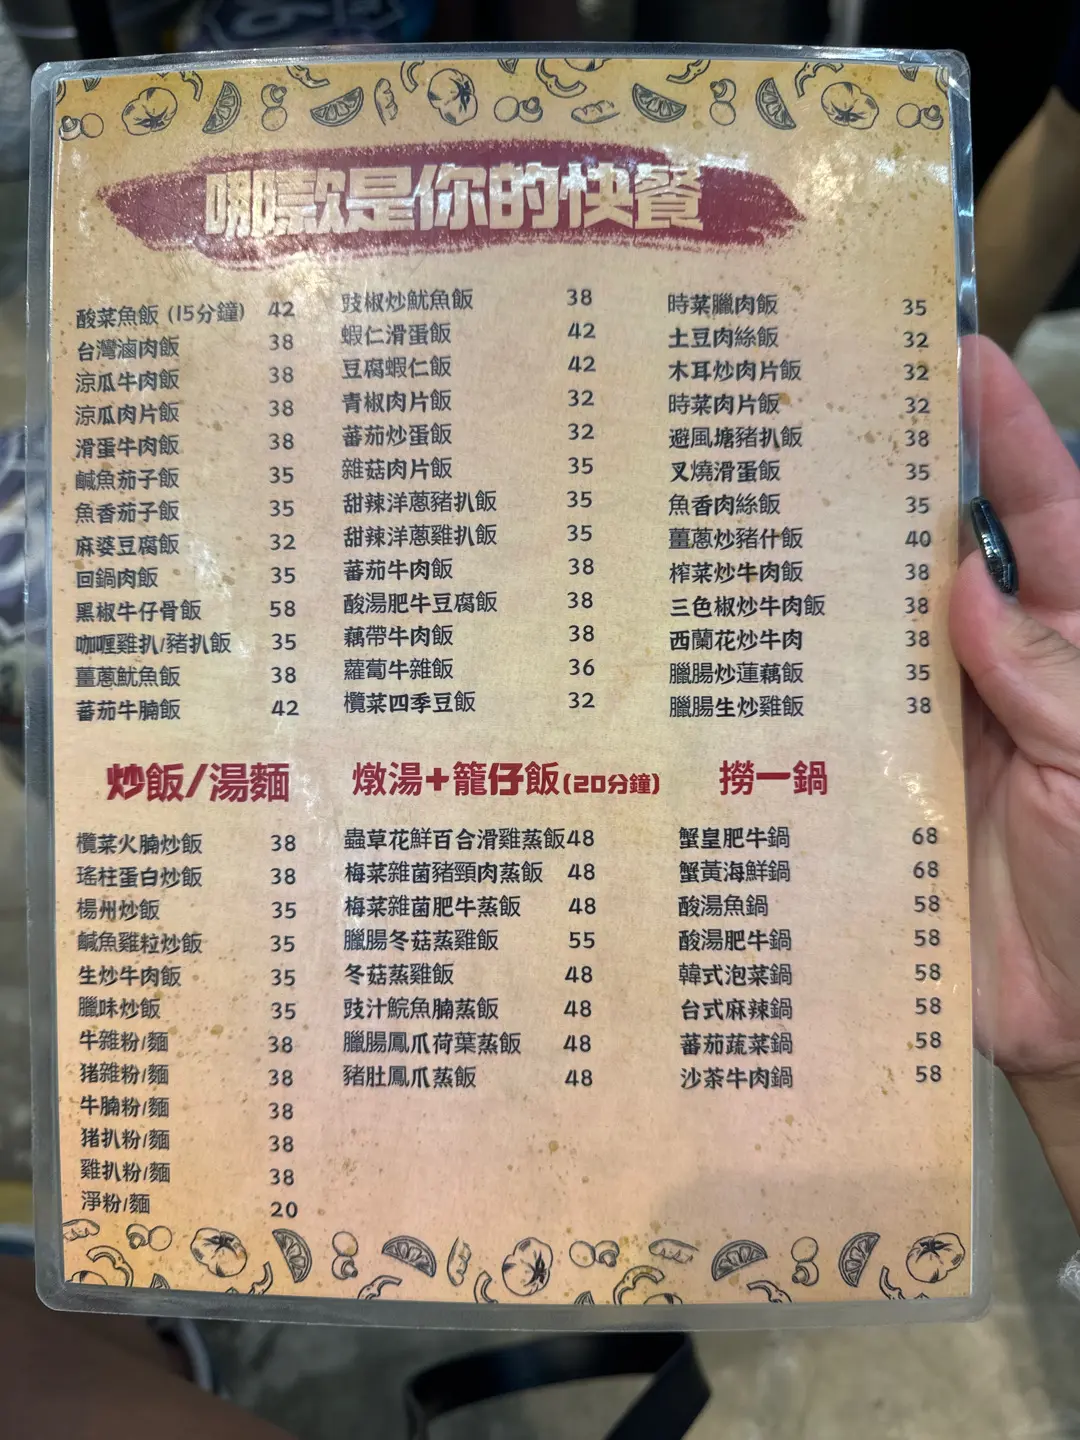 哪款是你的快餐
酸菜魚飯 (15分鐘) 42
台灣滷肉飯 38
涼瓜牛肉飯 38
涼瓜肉片飯 38
滑蛋牛肉飯 38
鹹魚茄子飯 35
魚香茄子飯 35
麻婆豆腐飯 32
回鍋肉飯 35
黑椒牛仔骨飯 58
咖喱雞扒/豬扒飯 35
薑蔥魷魚飯 38
蕃茄牛腩飯 42
豉椒炒魷魚飯 38
蝦仁滑蛋飯 42
豆腐蝦仁飯 42
青椒肉片飯 32
蕃茄炒蛋飯 32
雜菇肉片飯 35
甜辣洋蔥豬扒飯 35
甜辣洋蔥雞扒飯 35
蕃茄牛肉飯 38
酸湯肥牛豆腐飯 38
藕帶牛肉飯 38
蘿蔔牛雜飯 36
欖菜四季豆飯 32
時菜臘肉飯 35
土豆肉絲飯 32
木耳炒肉片飯 32
時菜肉片飯 32
避風塘豬扒飯 38
叉燒滑蛋飯 35
魚香肉絲飯 35
薑蔥炒豬什飯 40
榨菜炒牛肉飯 38
三色椒炒牛肉飯 38
西蘭花炒牛肉 38
臘腸炒蓮藕飯 35
臘腸生炒雞飯 38
炒飯/湯麵
欖菜火腩炒飯 38
瑤柱蛋白炒飯 38
楊州炒飯 35
鹹魚雞粒炒飯 35
生炒牛肉飯 35
臘味炒飯 35
牛雜粉/麵 38
猪雜粉/麵 38
牛腩粉/麵 38
猪扒粉/麵 38
雞扒粉/麵 38
淨粉/麵 20
燉湯+籠仔飯(20分鐘)
蟲草花鮮百合滑雞蒸飯 48
梅菜雜菌豬頸肉蒸飯 48
梅菜雜菌肥牛蒸飯 48
臘腸冬菇蒸雞飯 55
冬菇蒸雞飯 48
豉汁鯇魚腩蒸飯 48
臘腸鳳爪荷葉蒸飯 48
豬肚鳳爪蒸飯 48
撈一鍋
蟹皇肥牛鍋 68
蟹黃海鮮鍋 68
酸湯魚鍋 58
酸湯肥牛鍋 58
韓式泡菜鍋 58
台式麻辣鍋 58
蕃茄蔬菜鍋 58
沙茶牛肉鍋 58